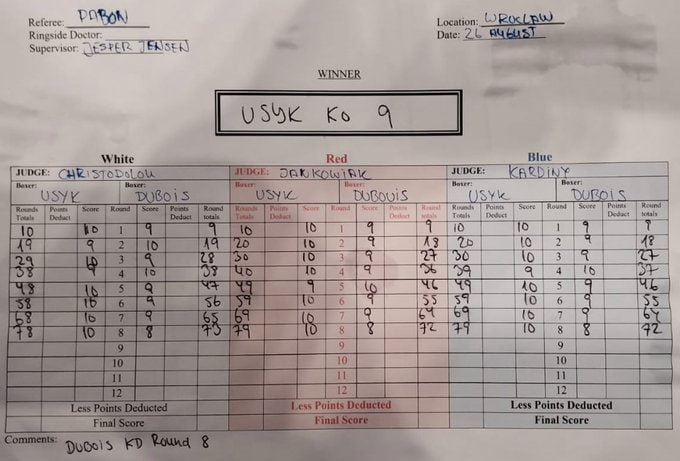 Referee: PABON
Ringside Doctor:
Supervisor: JESPER JENSEN
Location: WROCLAW
Date: 26 AUGUST
WINNER
USYK KO 9
White Red Blue
JUDGE: CHRISTODOLOU JUDGE: JANKOWIAK JUDGE: KARDINY
Boxer: Boxer: Boxer: Boxer: Boxer: Boxer:
USYK DUBOIS USYK DUBOUIS USYK DUBOIS
Rounds Totals Points Deduct Score Round Score Points Deduct Round totals Rounds Totals Points Deduct Score Round Score Points Deduct Round totals Rounds Totals Points Deduct Score Round Score Points Deduct Round totals
10 10 1 9 9 10 10 1 9 9 10 10 1 9 9
19 9 2 10 19 20 10 2 9 18 20 10 2 9 18
29 10 3 9 28 30 10 3 9 27 30 10 3 9 27
38 9 4 10 38 40 10 4 9 36 39 9 4 10 37
48 10 5 9 47 49 9 5 10 46 49 10 5 9 46
58 10 6 9 56 59 10 6 9 55 59 10 6 9 55
68 10 7 9 65 69 10 7 9 64 69 10 7 9 64
78 10 8 8 73 79 10 8 8 72 79 10 8 8 72
9 9 9
10 10 10
11 11 11
12 12 12
Less Points Deducted Less Points Deducted Less Points Deducted
Final Score Final Score Final Score
Comments: DUBOIS KD Round 8